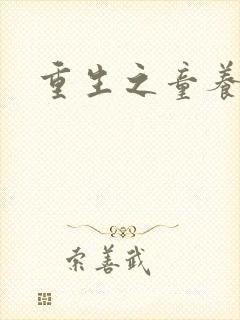 重生之童养
索善武